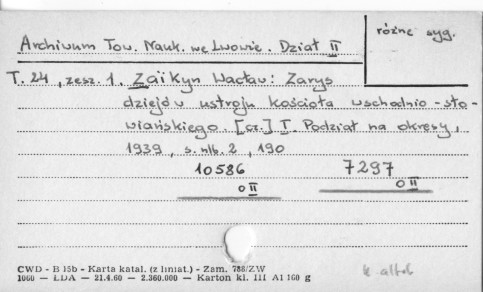 różne syg.
Archiwum Tow. Nauk. we Lwowie. Dział II
T. 24, zesz. 1. Zaikyn Wacław: Zarys
dziejów ustroju kościoła wschodnio-sło-
wiańskiego. [cz.] I. Podział na okresy,
1939, s. nlb. 2, 190
10586 7297
0 II 0 II
CWD - B 15b - Karta katal. (z liniat.) - Zam. 788/ZW
1060 — ŁDA — 21.4.60 — 2.360.000 — Karton kl. III A1 160 g